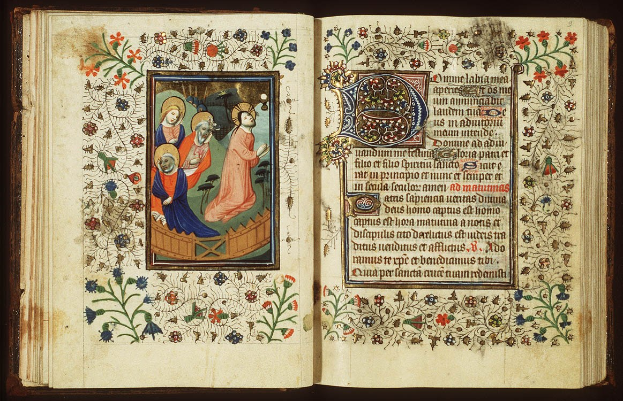 Domine labia mea
aperies Et os me
um annunciabit
laudem tuā De
us in adiutoriū
meum intende.
Domine ad adiu
uandum me festina Gloria patri et
filio et filio spiritui sancto Sicut e
rat in principio et nunc et semper et
in secula seculor amen ad matutinas
Patris sapiencia ueritas diuina
deus homo captus est homo
captus est hora matutina a notis et
discipulis cito derelictus est iudeis tra
ditus uenditus et afflictus V. Ado
ramus te xpe et benedicimus tibi.
Quia per sanctā crucē tuam redemisti